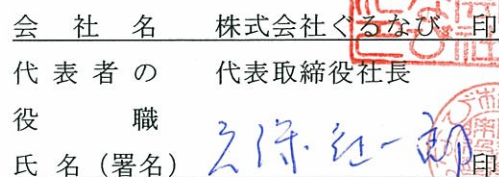 会社名 株式会社ぐるなび 印
代表者の 代表取締役社長
役職
氏名（署名） 久保征一郎 印